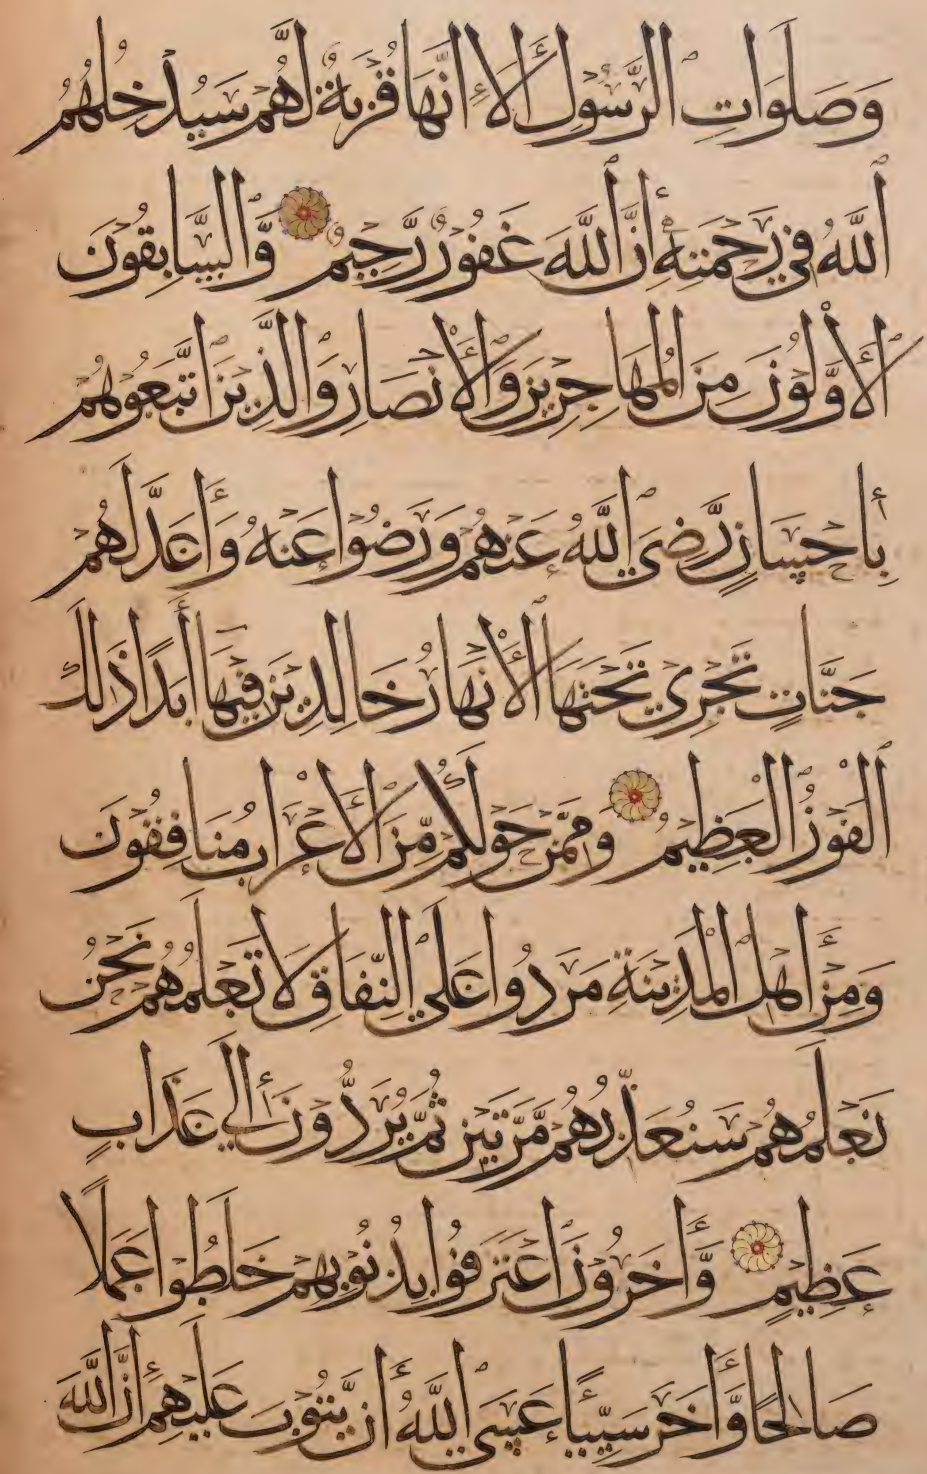 وَصَلَوَاتِ الرَّسُولِ أَلَا إِنَّهَا قُرْبَةٌ لَّهُمْ سَيُدْخِلُهُمُ
اللَّهُ فِي رَحْمَتِهِ إِنَّ اللَّهَ غَفُورٌ رَّحِيمٌ وَّالسَّابِقُونَ
الْأَوَّلُونَ مِنَ الْمُهَاجِرِينَ وَالْأَنْصَارِ وَالَّذِينَ اتَّبَعُوهُمْ
بِإِحْسَانٍ رَّضِيَ اللَّهُ عَنْهُمْ وَرَضُوا عَنْهُ وَأَعَدَّ لَهُمْ
جَنَّاتٍ تَجْرِي تَحْتَهَا الْأَنْهَارُ خَالِدِينَ فِيهَا أَبَدًا ذَلِكَ
الْفَوْزُ الْعَظِيمُ وَمِمَّنْ حَوْلَكُمْ مِّنَ الْأَعْرَابِ مُنَافِقُونَ
وَمِنْ أَهْلِ الْمَدِينَةِ مَرَدُوا عَلَى النِّفَاقِ لَا تَعْلَمُهُمْ نَحْنُ
نَعْلَمُهُمْ سَنُعَذِّبُهُمْ مَّرَّتَيْنِ ثُمَّ يُرَدُّونَ إِلَى عَذَابٍ
عَظِيمٍ وَّأَخَرُونَ اعْتَرَفُوا بِذُنُوبِهِمْ خَلَطُوا عَمَلًا
صَالِحًا وَّأَخَرَ سَيِّئًا عَسَى اللَّهُ أَنْ يَّتُوبَ عَلَيْهِمْ إِنَّ اللَّهَ